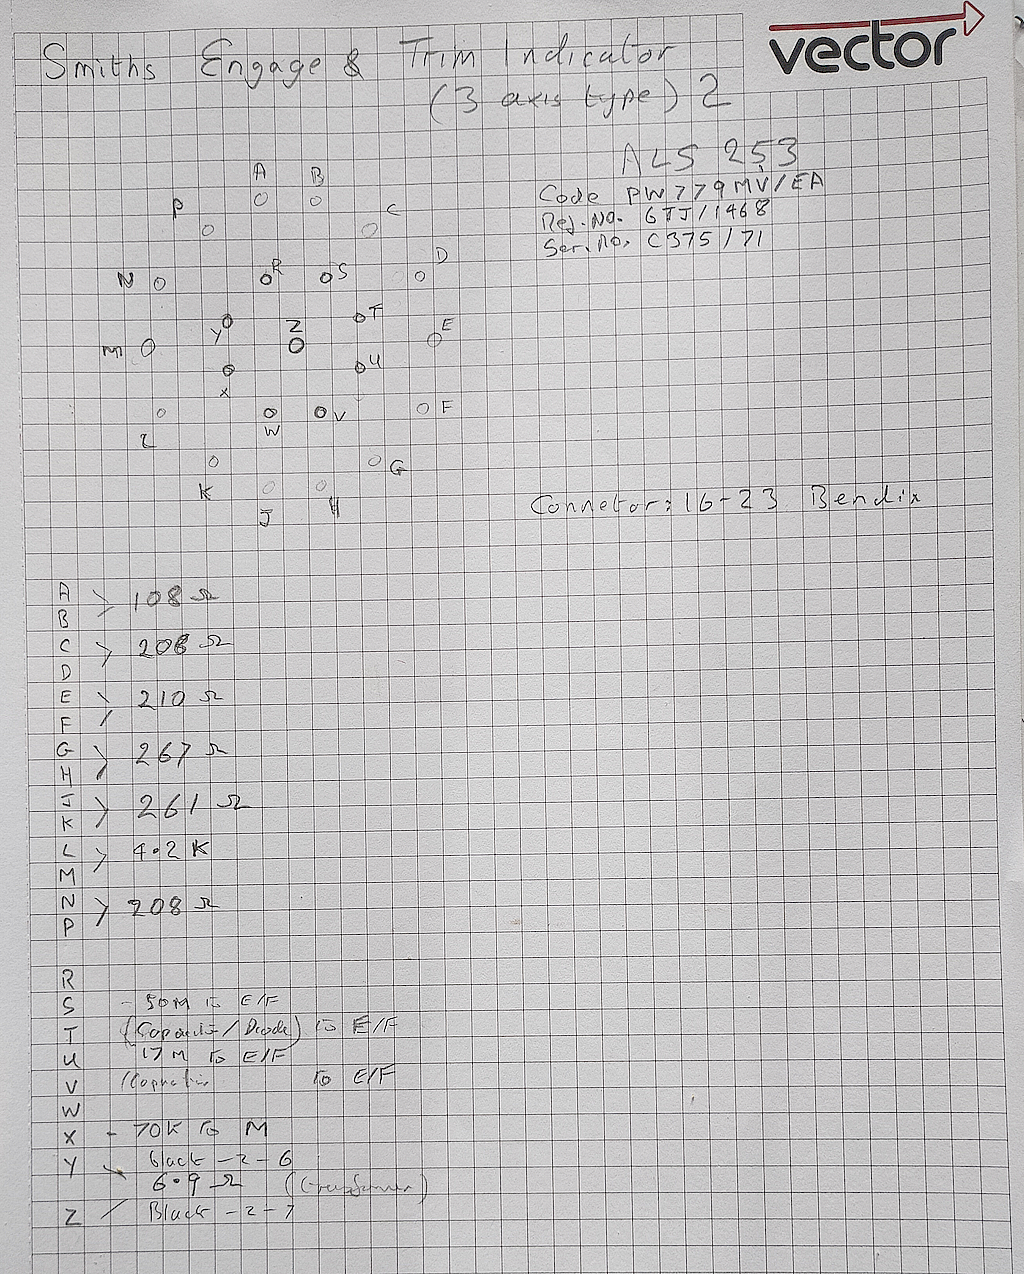 vector
Smiths Engage & Trim Indicator
(3 axis type) 2
ALS 253
Code PW779MV/EA
Ref.No. 6TJ/1468
Ser.No. C375/71
A B
P C
N R S D
Y Z T E
M U
X
L W V F
K G
J H
Connetor: 16-23 Bendix
A
> 108 Ω
B
C
> 208 Ω
D
E
> 210 Ω
F
G
> 267 Ω
H
J
> 261 Ω
K
L
> 4.2 K
M
N
> 208 Ω
P
R
S - 50M to E/F
T (Capacitor/Diode) to E/F
U 17M to E/F
V to E/F
W
X - 70K to M
Y Black -2-6
6.9 Ω (transformer)
Z Black -2-7